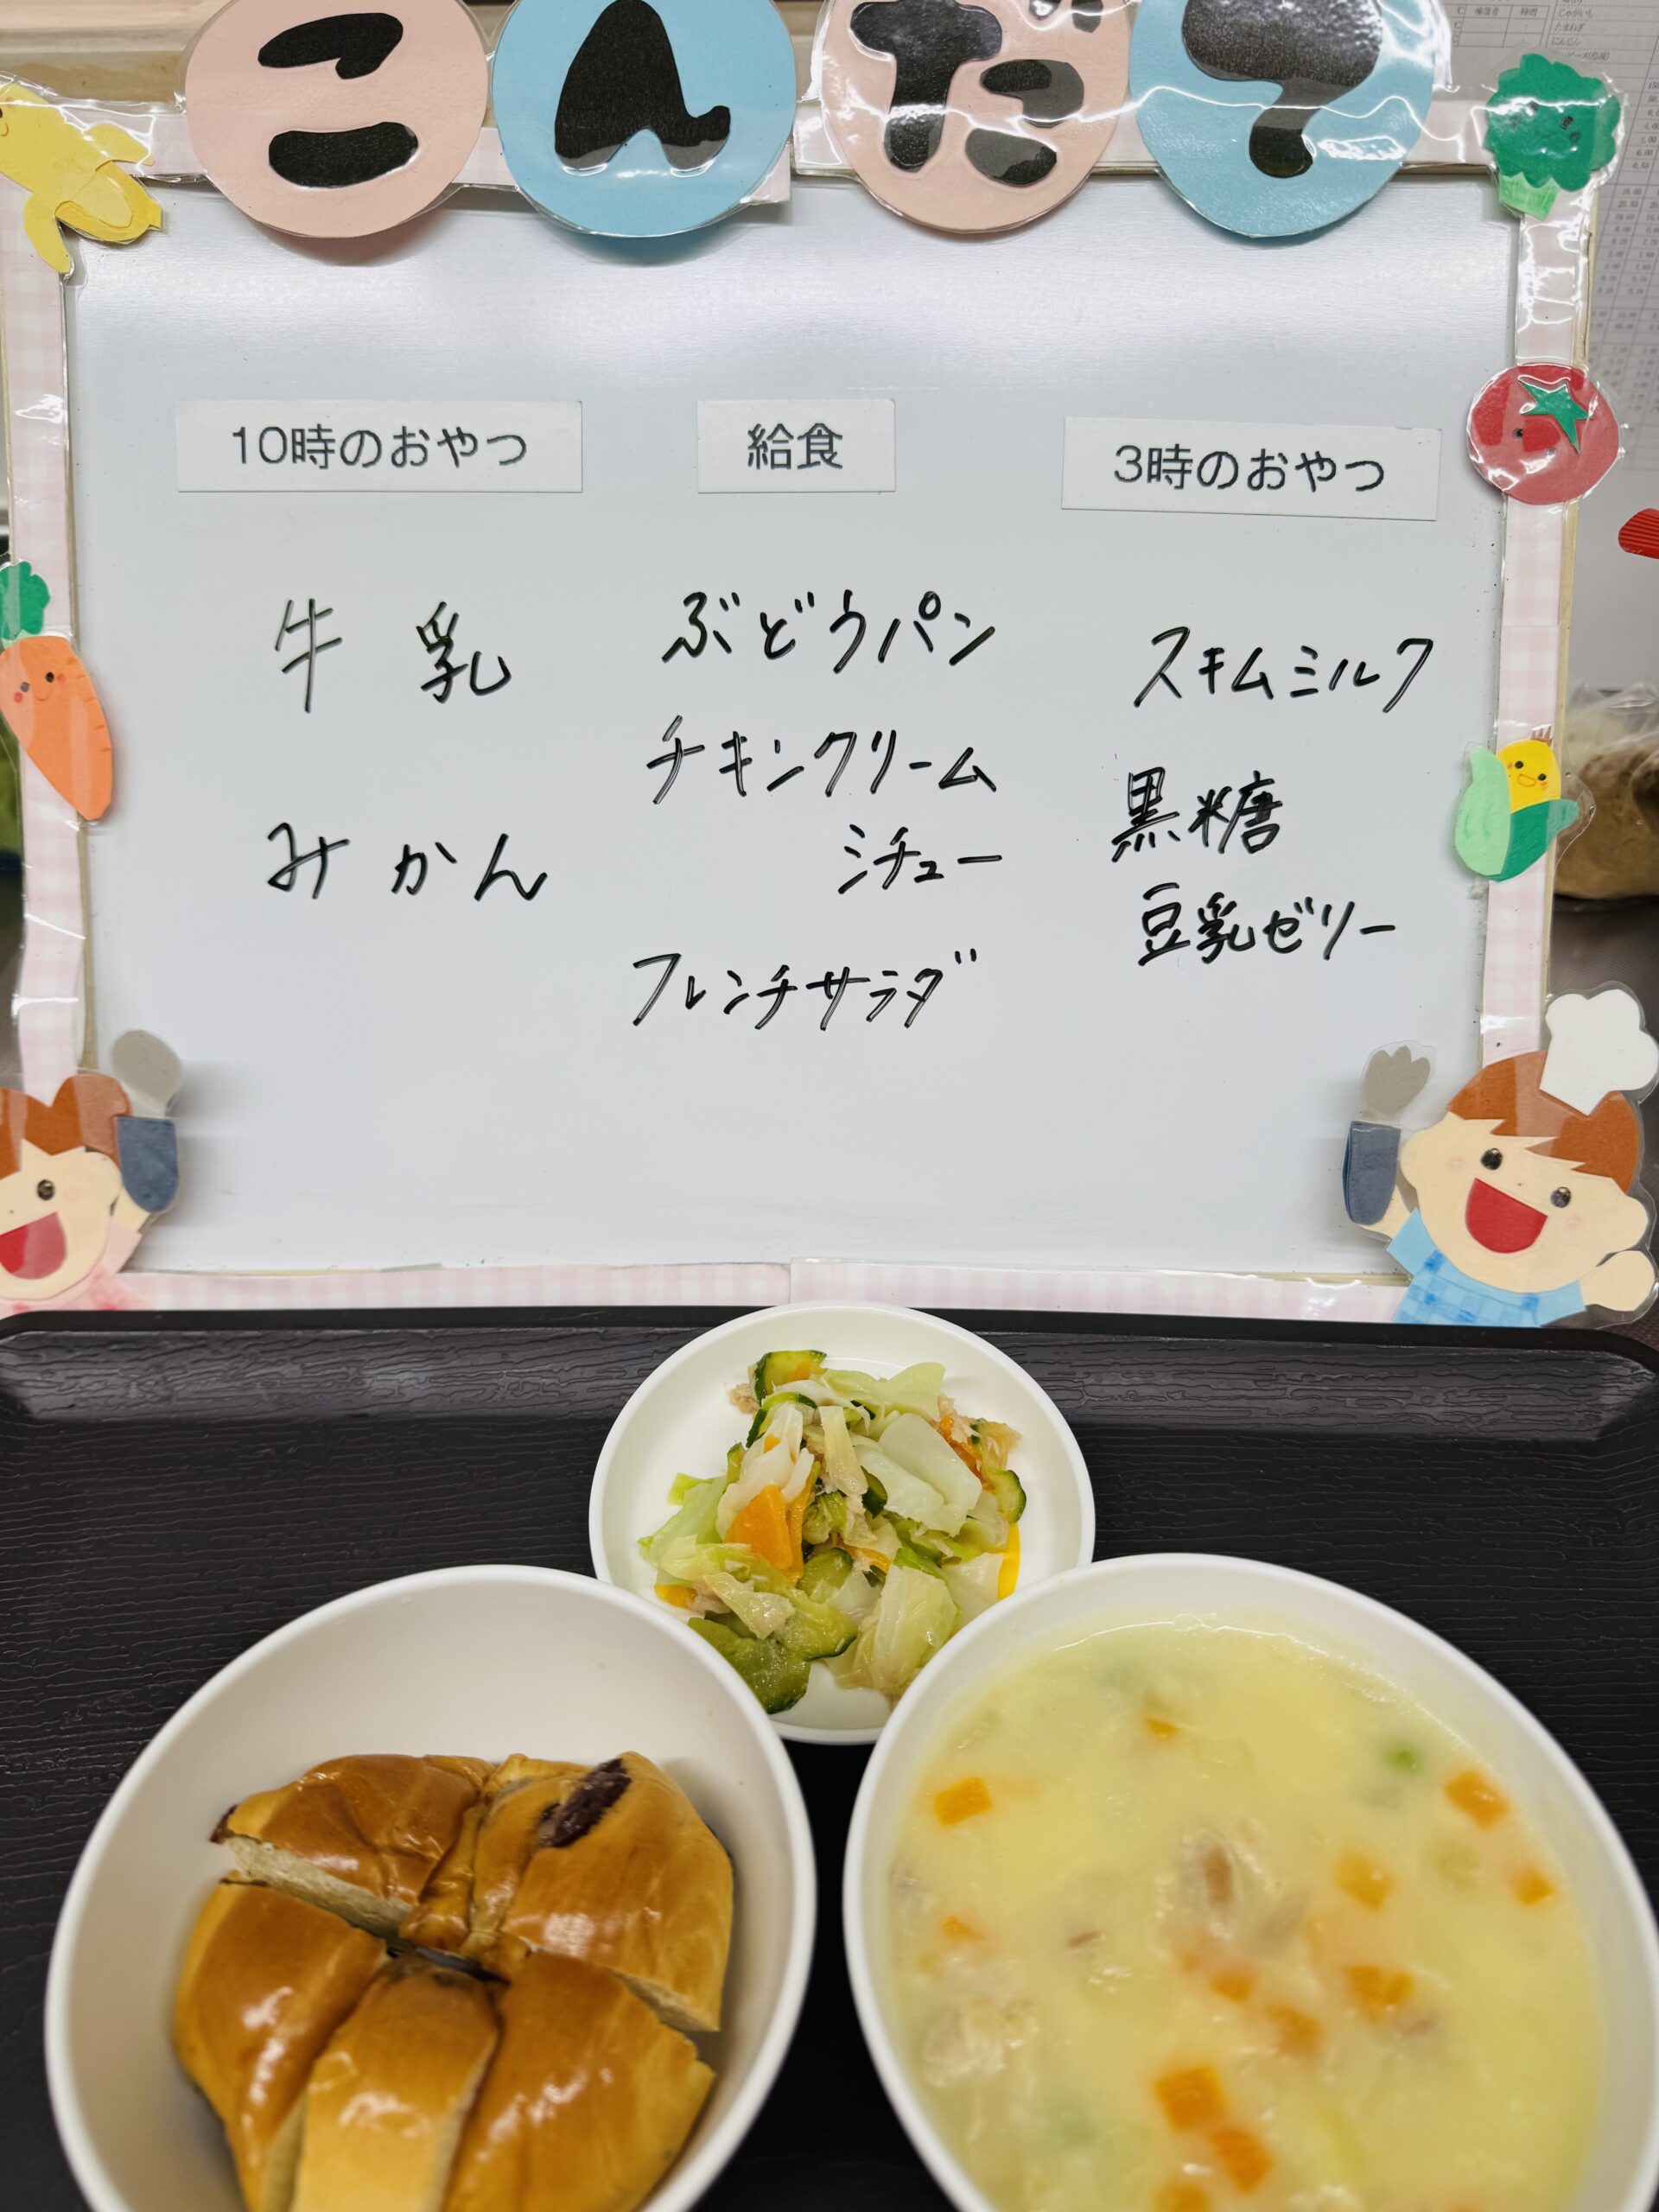 こんだて
10時のおやつ
牛乳
みかん
給食
ぶどうパン
チキンクリーム
シチュー
フレンチサラダ
3時のおやつ
スキムミルク
黒糖
豆乳ゼリー